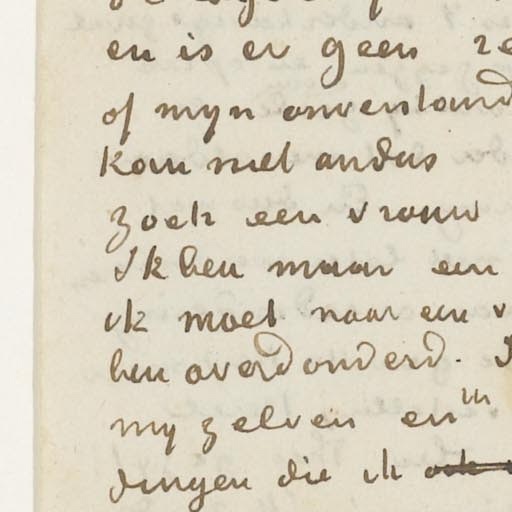 en is er geen
of myn onverstand
kan niet anders
zoek een vrouw
Ik ben maar een
ik moet naar een v
ben overdonderd.
my zelven en in
dingen die ik ook